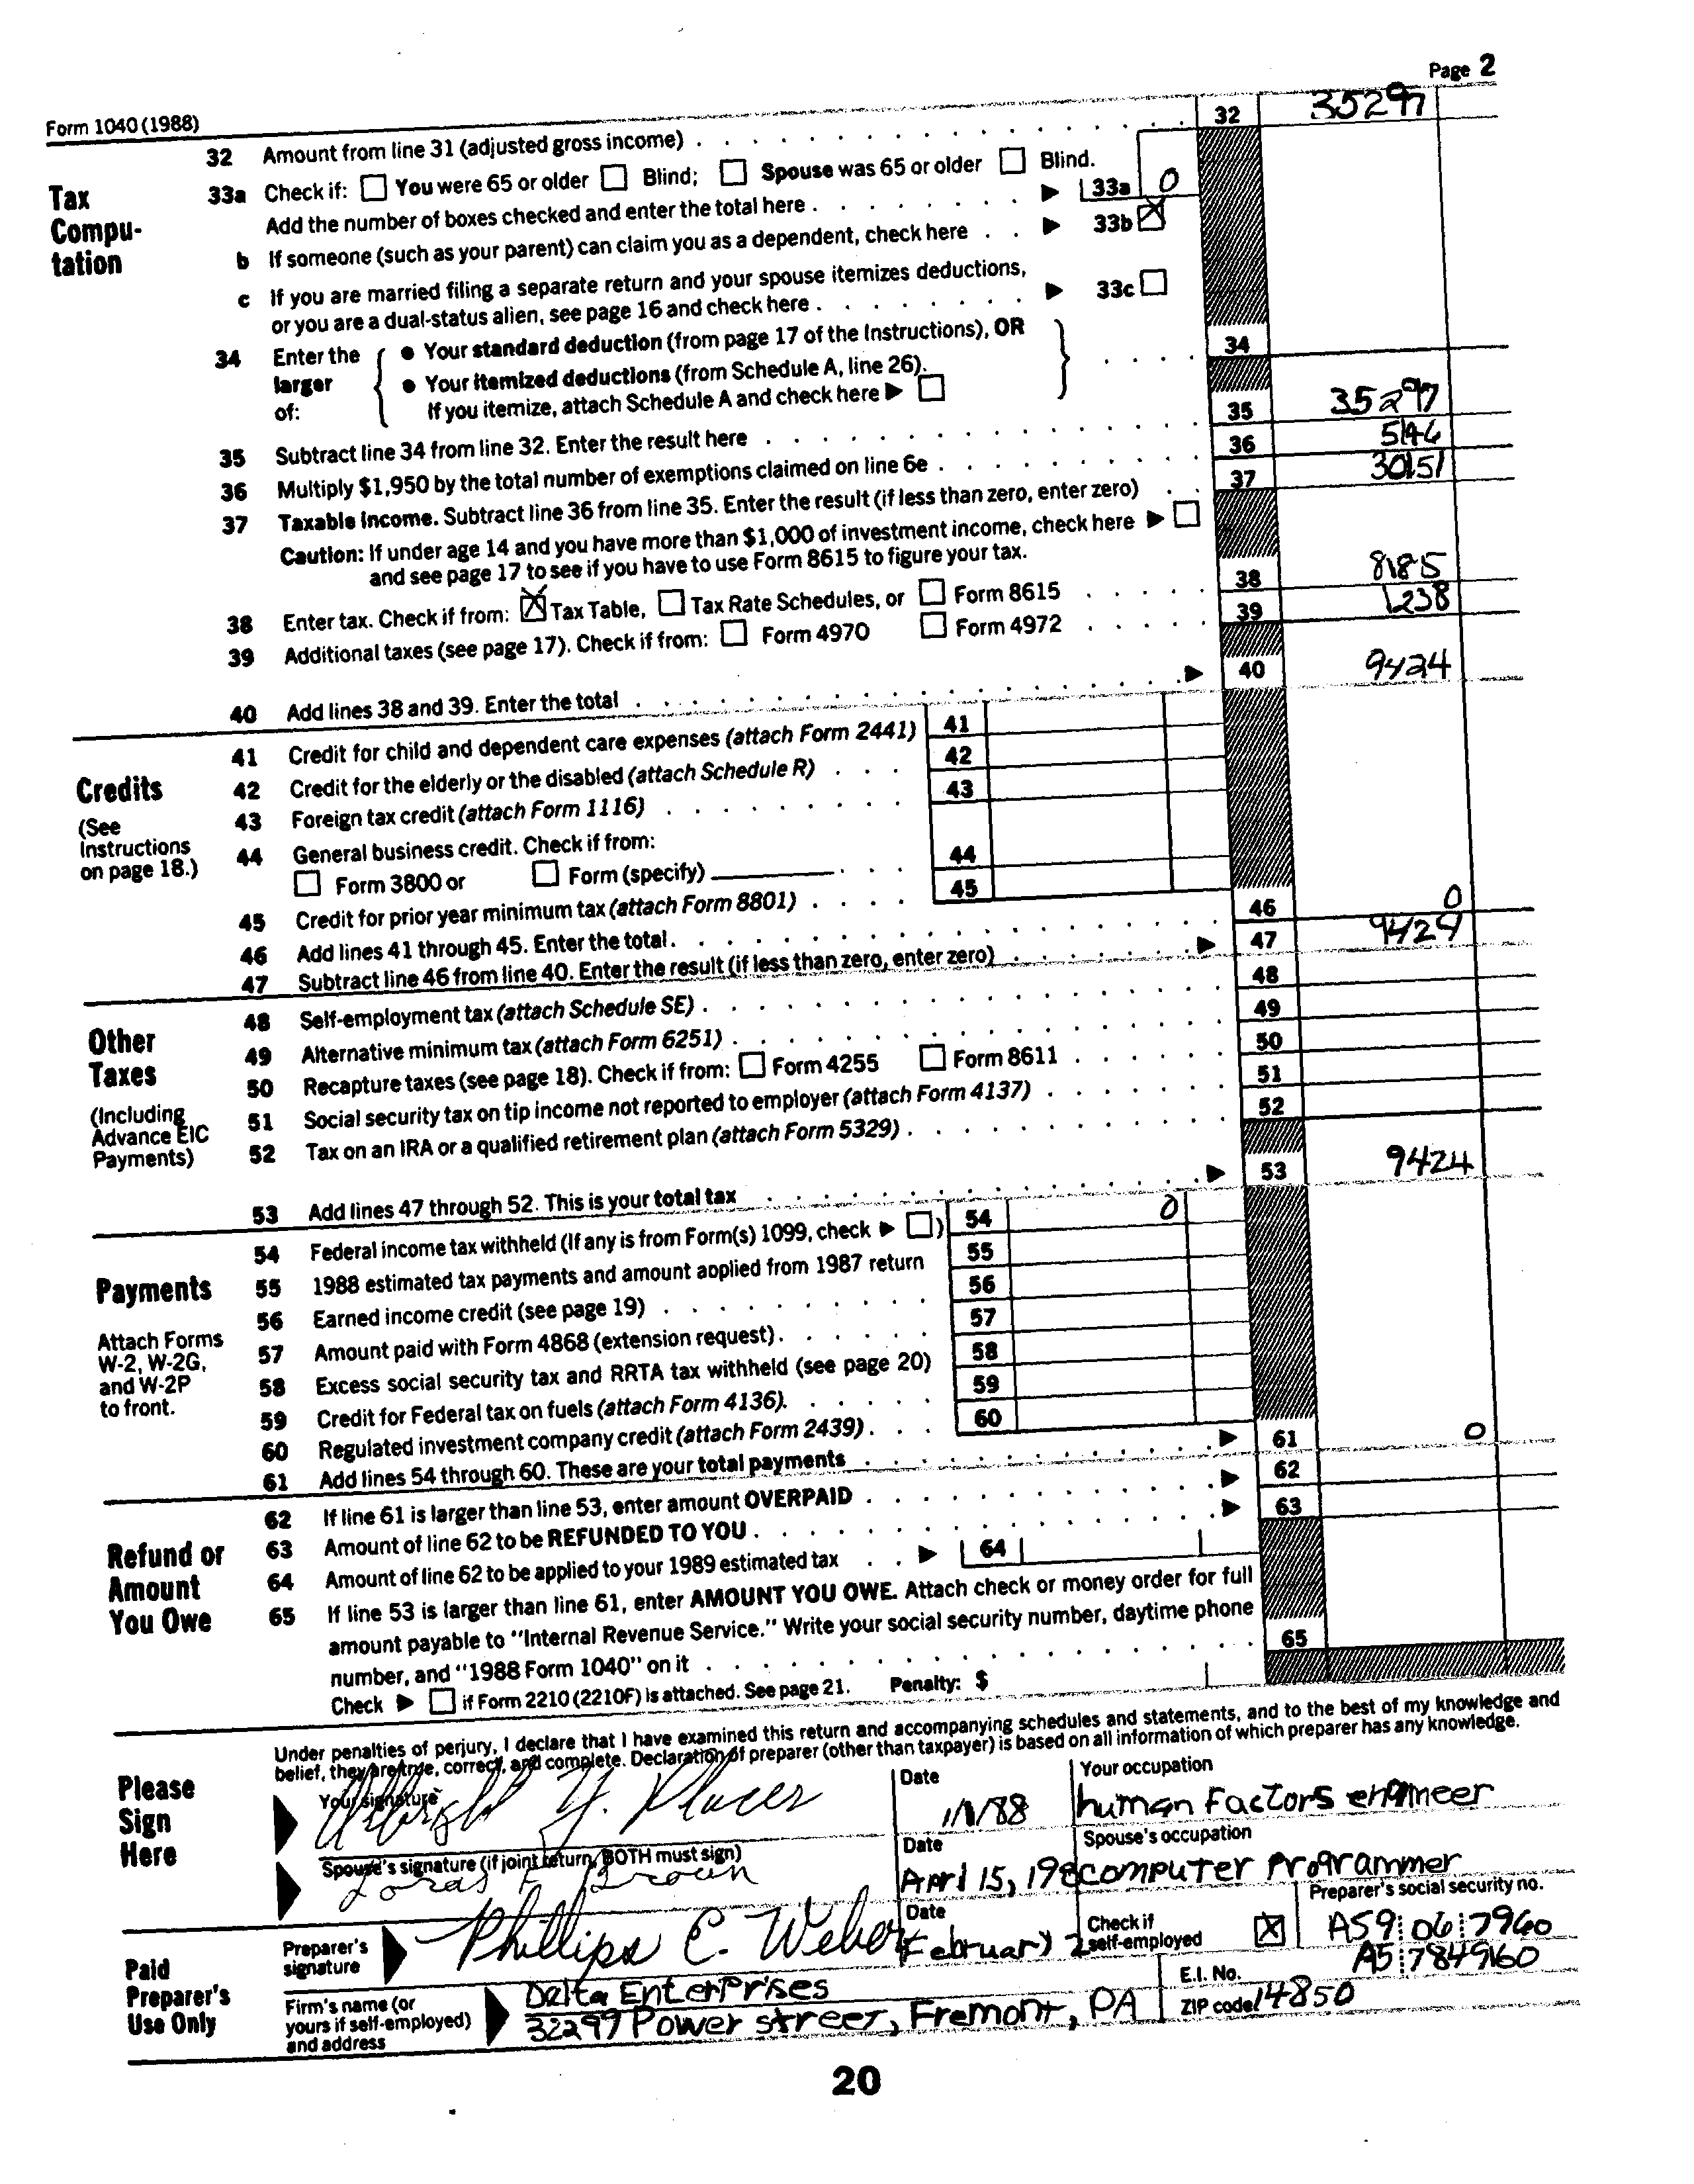 Page 2
Form 1040 (1988)
32 Amount from line 31 (adjusted gross income) 32 35297
Tax Compu- tation
33a Check if: You were 65 or older Blind; Spouse was 65 or older Blind.
Add the number of boxes checked and enter the total here 33a 0
b If someone (such as your parent) can claim you as a dependent, check here 33b X
c If you are married filing a separate return and your spouse itemizes deductions,
or you are a dual-status alien, see page 16 and check here 33c
34 Enter the larger of:
• Your standard deduction (from page 17 of the Instructions), OR 34
• Your itemized deductions (from Schedule A, line 26).
If you itemize, attach Schedule A and check here
35 Subtract line 34 from line 32. Enter the result here 35 35297
36 Multiply $1,950 by the total number of exemptions claimed on line 6e 36 5146
37 Taxable income. Subtract line 36 from line 35. Enter the result (if less than zero, enter zero) 37 30151
Caution: If under age 14 and you have more than $1,000 of investment income, check here
and see page 17 to see if you have to use Form 8615 to figure your tax.
38 Enter tax. Check if from: X Tax Table, Tax Rate Schedules, or Form 8615 38 8185
39 Additional taxes (see page 17). Check if from: Form 4970 Form 4972 39 1238
40 Add lines 38 and 39. Enter the total 40 9424
Credits
(See Instructions on page 18.)
41 Credit for child and dependent care expenses (attach Form 2441) 41
42 Credit for the elderly or the disabled (attach Schedule R) 42
43 Foreign tax credit (attach Form 1116) 43
44 General business credit. Check if from:
Form 3800 or Form (specify) 44
45 Credit for prior year minimum tax (attach Form 8801) 45
46 Add lines 41 through 45. Enter the total 46 0
47 Subtract line 46 from line 40. Enter the result (if less than zero, enter zero) 47 9424
Other Taxes
(Including Advance EIC Payments)
48 Self-employment tax (attach Schedule SE) 48
49 Alternative minimum tax (attach Form 6251) 49
50 Recapture taxes (see page 18). Check if from: Form 4255 Form 8611 50
51 Social security tax on tip income not reported to employer (attach Form 4137) 51
52 Tax on an IRA or a qualified retirement plan (attach Form 5329) 52
53 Add lines 47 through 52. This is your total tax 53 9424
Payments
Attach Forms W-2, W-2G, and W-2P to front.
54 Federal income tax withheld (If any is from Form(s) 1099, check ) 54 0
55 1988 estimated tax payments and amount applied from 1987 return 55
56 Earned income credit (see page 19) 56
57 Amount paid with Form 4868 (extension request) 57
58 Excess social security tax and RRTA tax withheld (see page 20) 58
59 Credit for Federal tax on fuels (attach Form 4136). 59
60 Regulated investment company credit (attach Form 2439) 60
61 Add lines 54 through 60. These are your total payments 61 0
Refund or Amount You Owe
62 If line 61 is larger than line 53, enter amount OVERPAID 62
63 Amount of line 62 to be REFUNDED TO YOU 63
64 Amount of line 62 to be applied to your 1989 estimated tax 64
65 If line 53 is larger than line 61, enter AMOUNT YOU OWE. Attach check or money order for full
amount payable to "Internal Revenue Service." Write your social security number, daytime phone
number, and "1988 Form 1040" on it 65
Check if Form 2210 (2210F) is attached. See page 21. Penalty: $
Please Sign Here
Under penalties of perjury, I declare that I have examined this return and accompanying schedules and statements, and to the best of my knowledge and
belief, they are true, correct, and complete. Declaration of preparer (other than taxpayer) is based on all information of which preparer has any knowledge.
Your signature Date 1/1/88 Your occupation human Factors engineer
Spouse's signature (if joint return, BOTH must sign) Brown Date April 15, 198 Spouse's occupation computer Programmer
Paid Preparer's Use Only
Preparer's signature Phillips C. Weber Date February 2 Check if self-employed X Preparer's social security no. A59 06 7960
Firm's name (or yours if self-employed) and address Delta Enterprises E.I. No. A5 7849160
32297 Power street, Fremont, PA ZIP code 14850
20